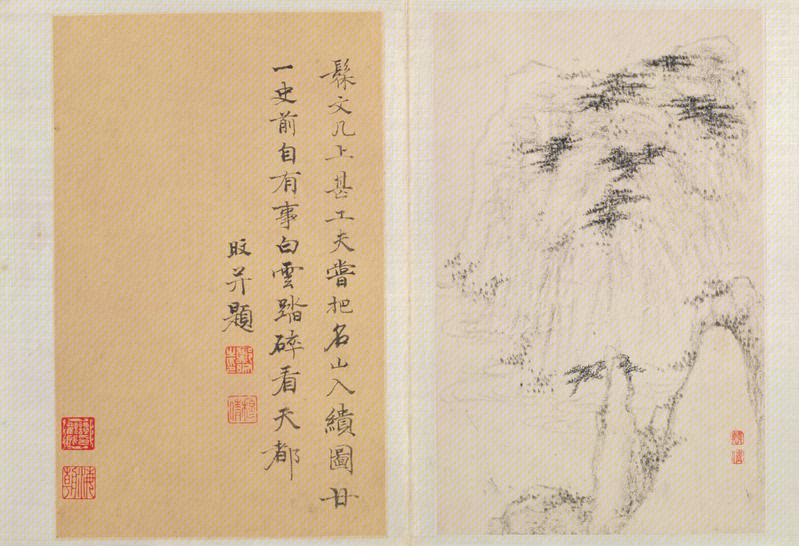 髹文几上甚工夫嘗把名山入繢圖廿
一史前自有事白雲踏碎看天都
旼并題